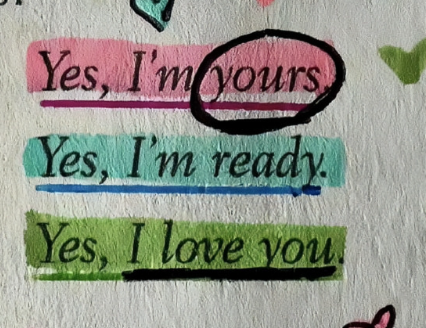 Yes, I'm yours.
Yes, I'm ready.
Yes, I love you.